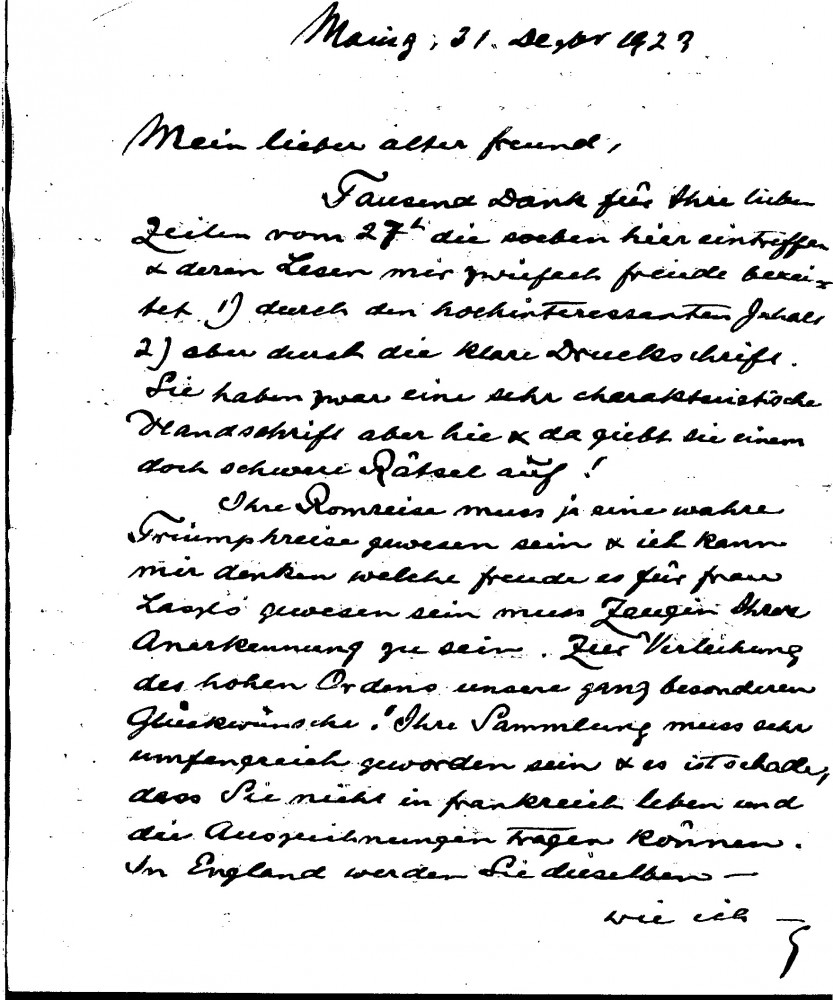 Mainz, 31. Dezbr 1923
Mein lieber alter Freund,
Tausend Dank für Ihre lieben
Zeilen vom 27t die soeben hier eintreffen
& deren Lesen mir zwiefach Freude berei=
tet 1) durch den hochinteressanten Inhalt
2) aber durch die klare Druckschrift.
Sie haben zwar eine sehr charakteristische
Handschrift aber hie & da giebt sie einem
doch schwere Rätsel auf!
Ihre Romreise muss ja eine wahre
Triumphreise gewesen sein & ich kann
mir denken welche Freude es für Frau
László gewesen sein muss Zeugin Ihrer
Anerkennung zu sein. Zur Verleihung
des hohen Ordens unsere ganz besonderen
Glückwünsche! Ihre Sammlung muss sehr
umfangreich geworden sein & es ist schade,
dass Sie nicht in Frankreich leben und
die Auszeichnungen tragen können.
In England werden Sie dieselben –
wie ich –